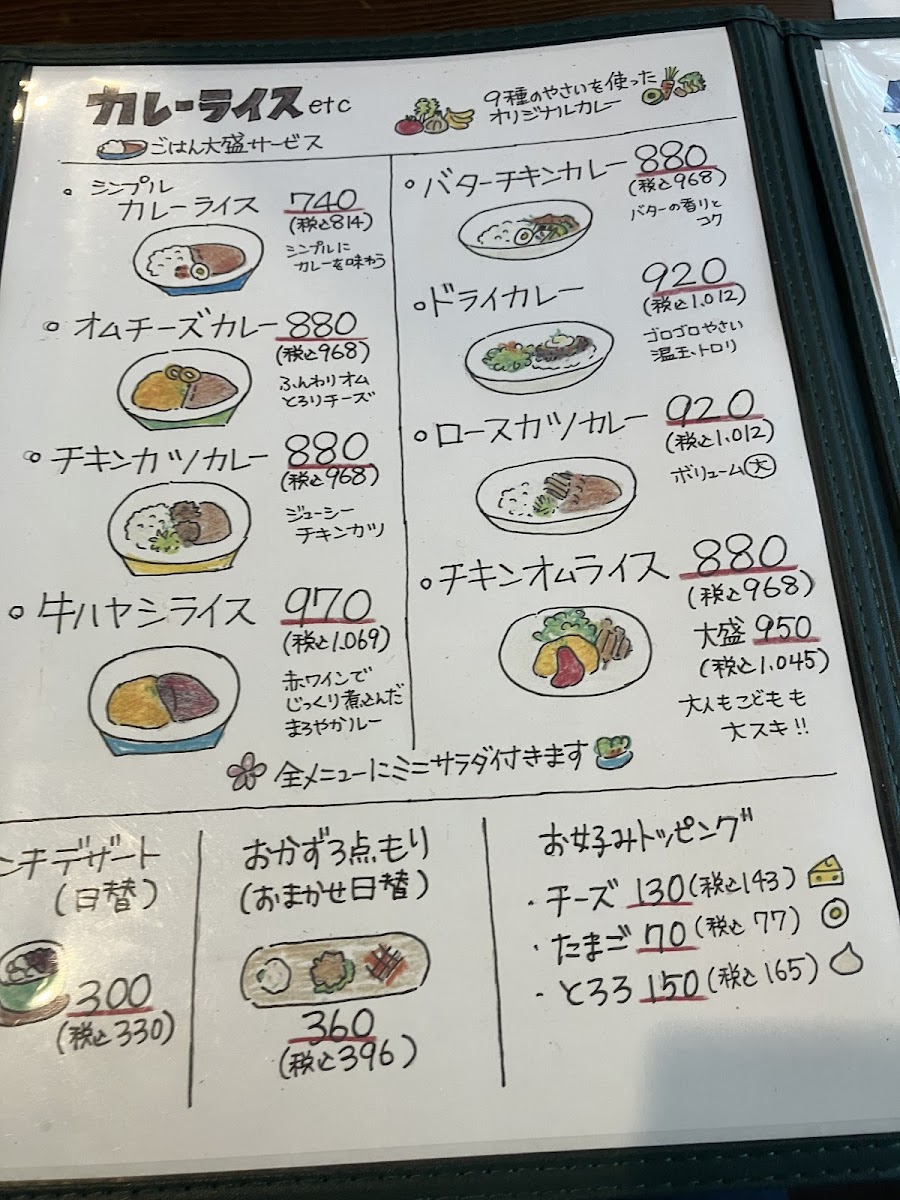 カレーライス etc
ごはん大盛サービス
9種のやさいを使った
オリジナルカレー
・シンプル
カレーライス 740
(税込814)
シンプルに
カレーを味わう
・オムチーズカレー 880
(税込968)
ふんわりオム
とろりチーズ
・チキンカツカレー 880
(税込968)
ジューシー
チキンカツ
・牛ハヤシライス 970
(税込1.069)
赤ワインで
じっくり煮込んだ
まろやかルー
・バターチキンカレー 880
(税込968)
バターの香りと
コク
・ドライカレー 920
(税込1.012)
ゴロゴロやさい
温玉、トロリ
・ロースカツカレー 920
(税込1.012)
ボリューム大
・チキンオムライス 880
(税込968)
大盛 950
(税込1.045)
大人もこどもも
大スキ!!
全メニューにミニサラダ付きます
ンチデザート
(日替)
300
(税込330)
おかず3点もり
(おまかせ日替)
360
(税込396)
お好みトッピング
・チーズ 130(税込143)
・たまご 70(税込77)
・とろろ 150(税込165)